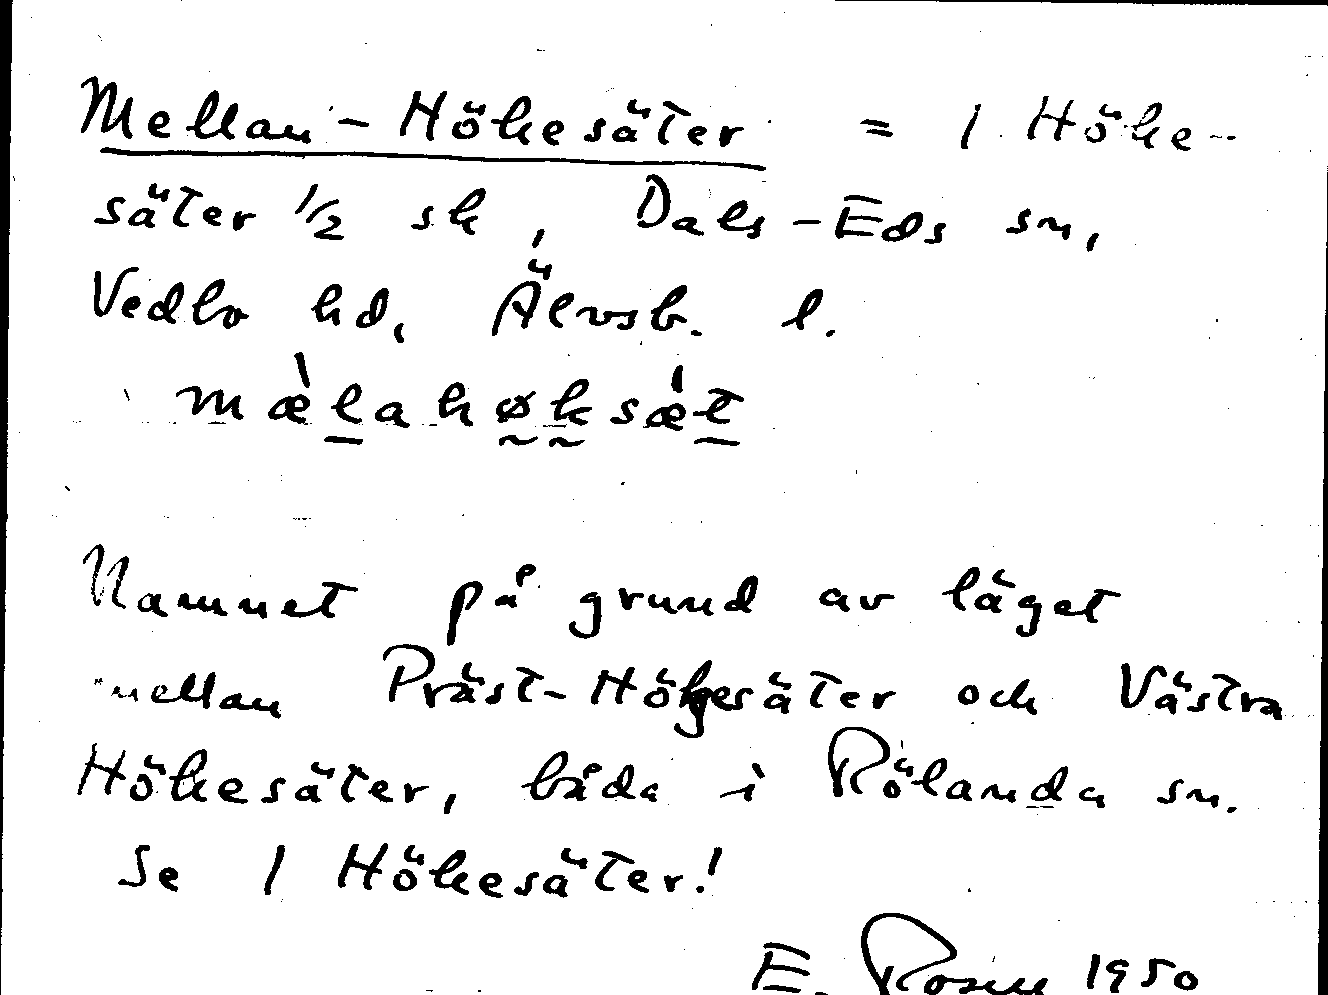 Mellan-Hökesäter = 1 Höke-
säter 1/2 sk, Dals-Eds sn,
Vedbo hd, Älvsb. l.
mæ̀lahøksæ̀t
Namnet på grund av läget
mellan Präst-Hökesäter och Västra
Hökesäter, båda i Rölanda sn.
Se 1 Hökesäter!
E. Rosell 1950